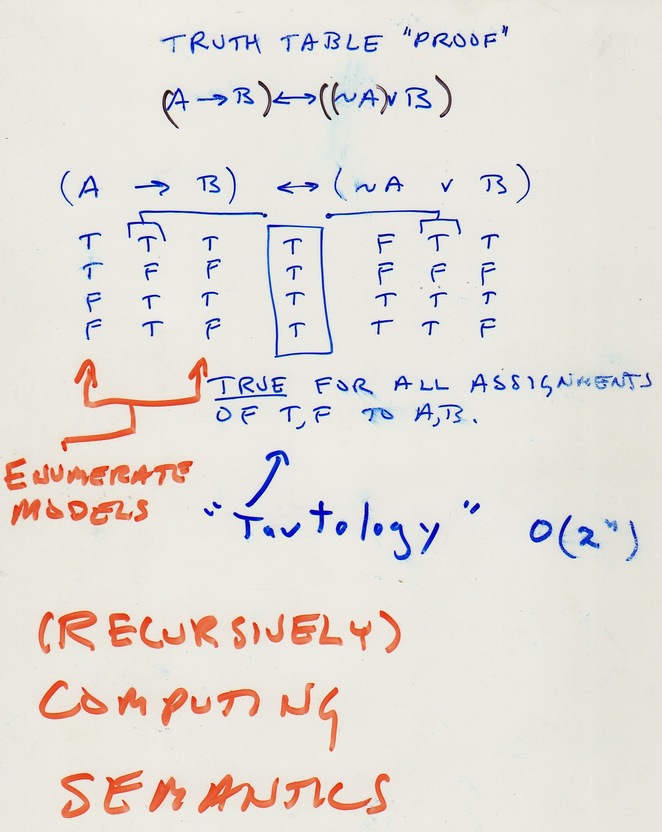 TRUTH TABLE "PROOF"
(A → B) ↔ ((~A) v B)
(A → B) ↔ (~A v B)
T T T T F T T
T F F T F F F
F T T T T T T
F T F T T T F
TRUE FOR ALL ASSIGNMENTS
OF T, F TO A, B.
ENUMERATE
MODELS
"Tautology" O(2ⁿ)
(RECURSIVELY)
COMPUTING
SEMANTICS